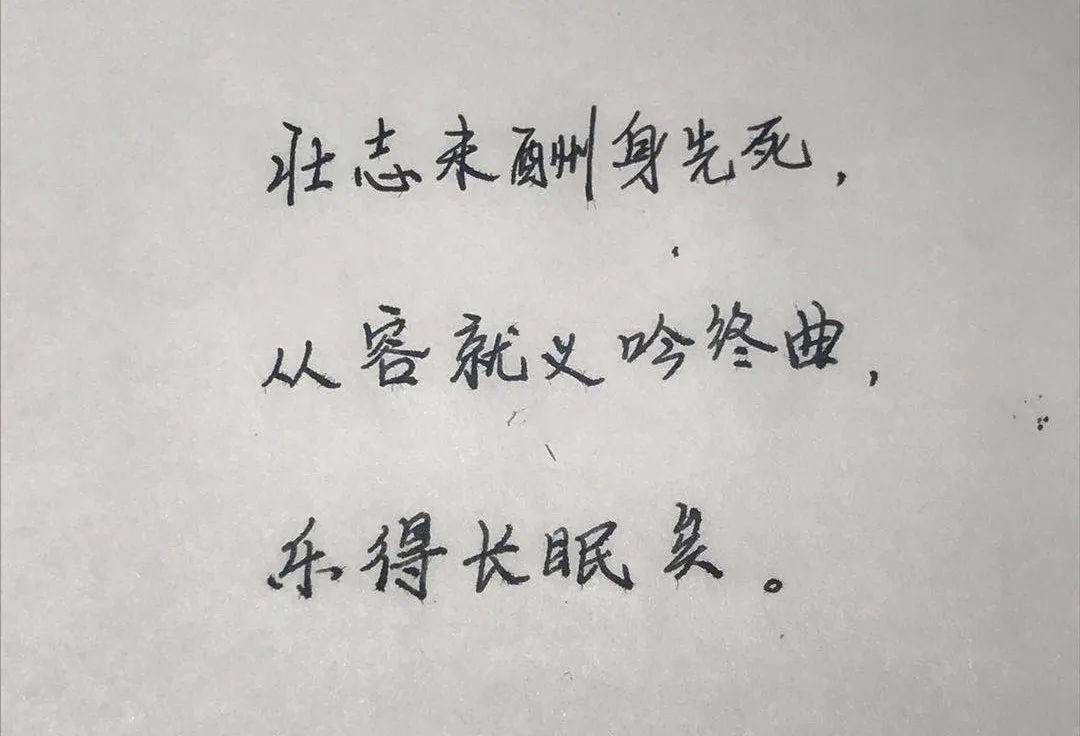 壮志未酬身先死，
从容就义吟终曲，
乐得长眠矣。